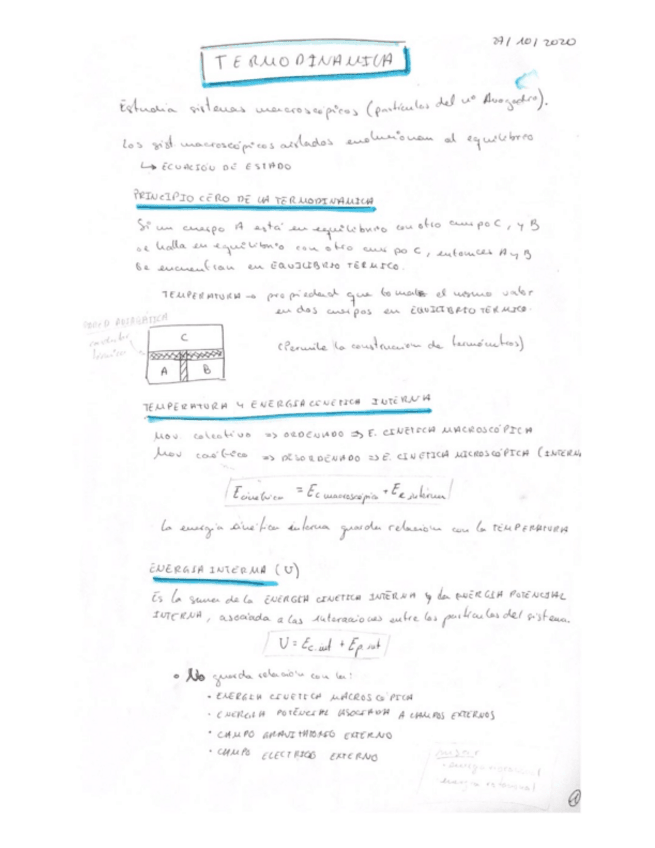 29/10/2020
TERMODINAMICA
Estudia sistemas macroscópicos (partículas del nº Avogadro).
Los sist macroscópicos aislados evolucionan al equilibrio
↳ ECUACIÓN DE ESTADO
PRINCIPIO CERO DE LA TERMODINAMICA
Si un cuerpo A está en equilibrio con otro cuerpo C, y B
se halla en equilibrio con otro cuerpo C, entonces A y B
se encuentran en EQUILIBRIO TÉRMICO.
TEMPERATURA → propiedad que toma el mismo valor
en dos cuerpos en EQUILIBRIO TÉRMICO.
PARED DIATÉRMICA
C
(Permite la construcción de termómetros)
A B
TEMPERATURA Y ENERGIA CINETICA INTERNA
Mov colectivo => ORDENADO => E. CINETICA MACROSCÓPICA
Mov caótico => DESORDENADO => E. CINETICA MICROSCÓPICA (INTERNA
E cinética = Ec macroscópica + Ec interna
La energía cinética interna guarda relación con la TEMPERATURA
ENERGIA INTERMA (U)
Es la suma de la ENERGIA CINETICA INTERNA y la ENERGIA POTENCIAL
INTERNA, asociada a las interacciones entre las partículas del sistema.
U = Ec.int + Ep.int
• No guarda relación con la:
• ENERGIA CINETICA MACROSCÓPICA
• ENERGIA POTENCIAL ASOCIADA A CAMPOS EXTERNOS
• CAMPO GRAVITATORIO EXTERNO
• CAMPO ELECTRICO EXTERNO
1